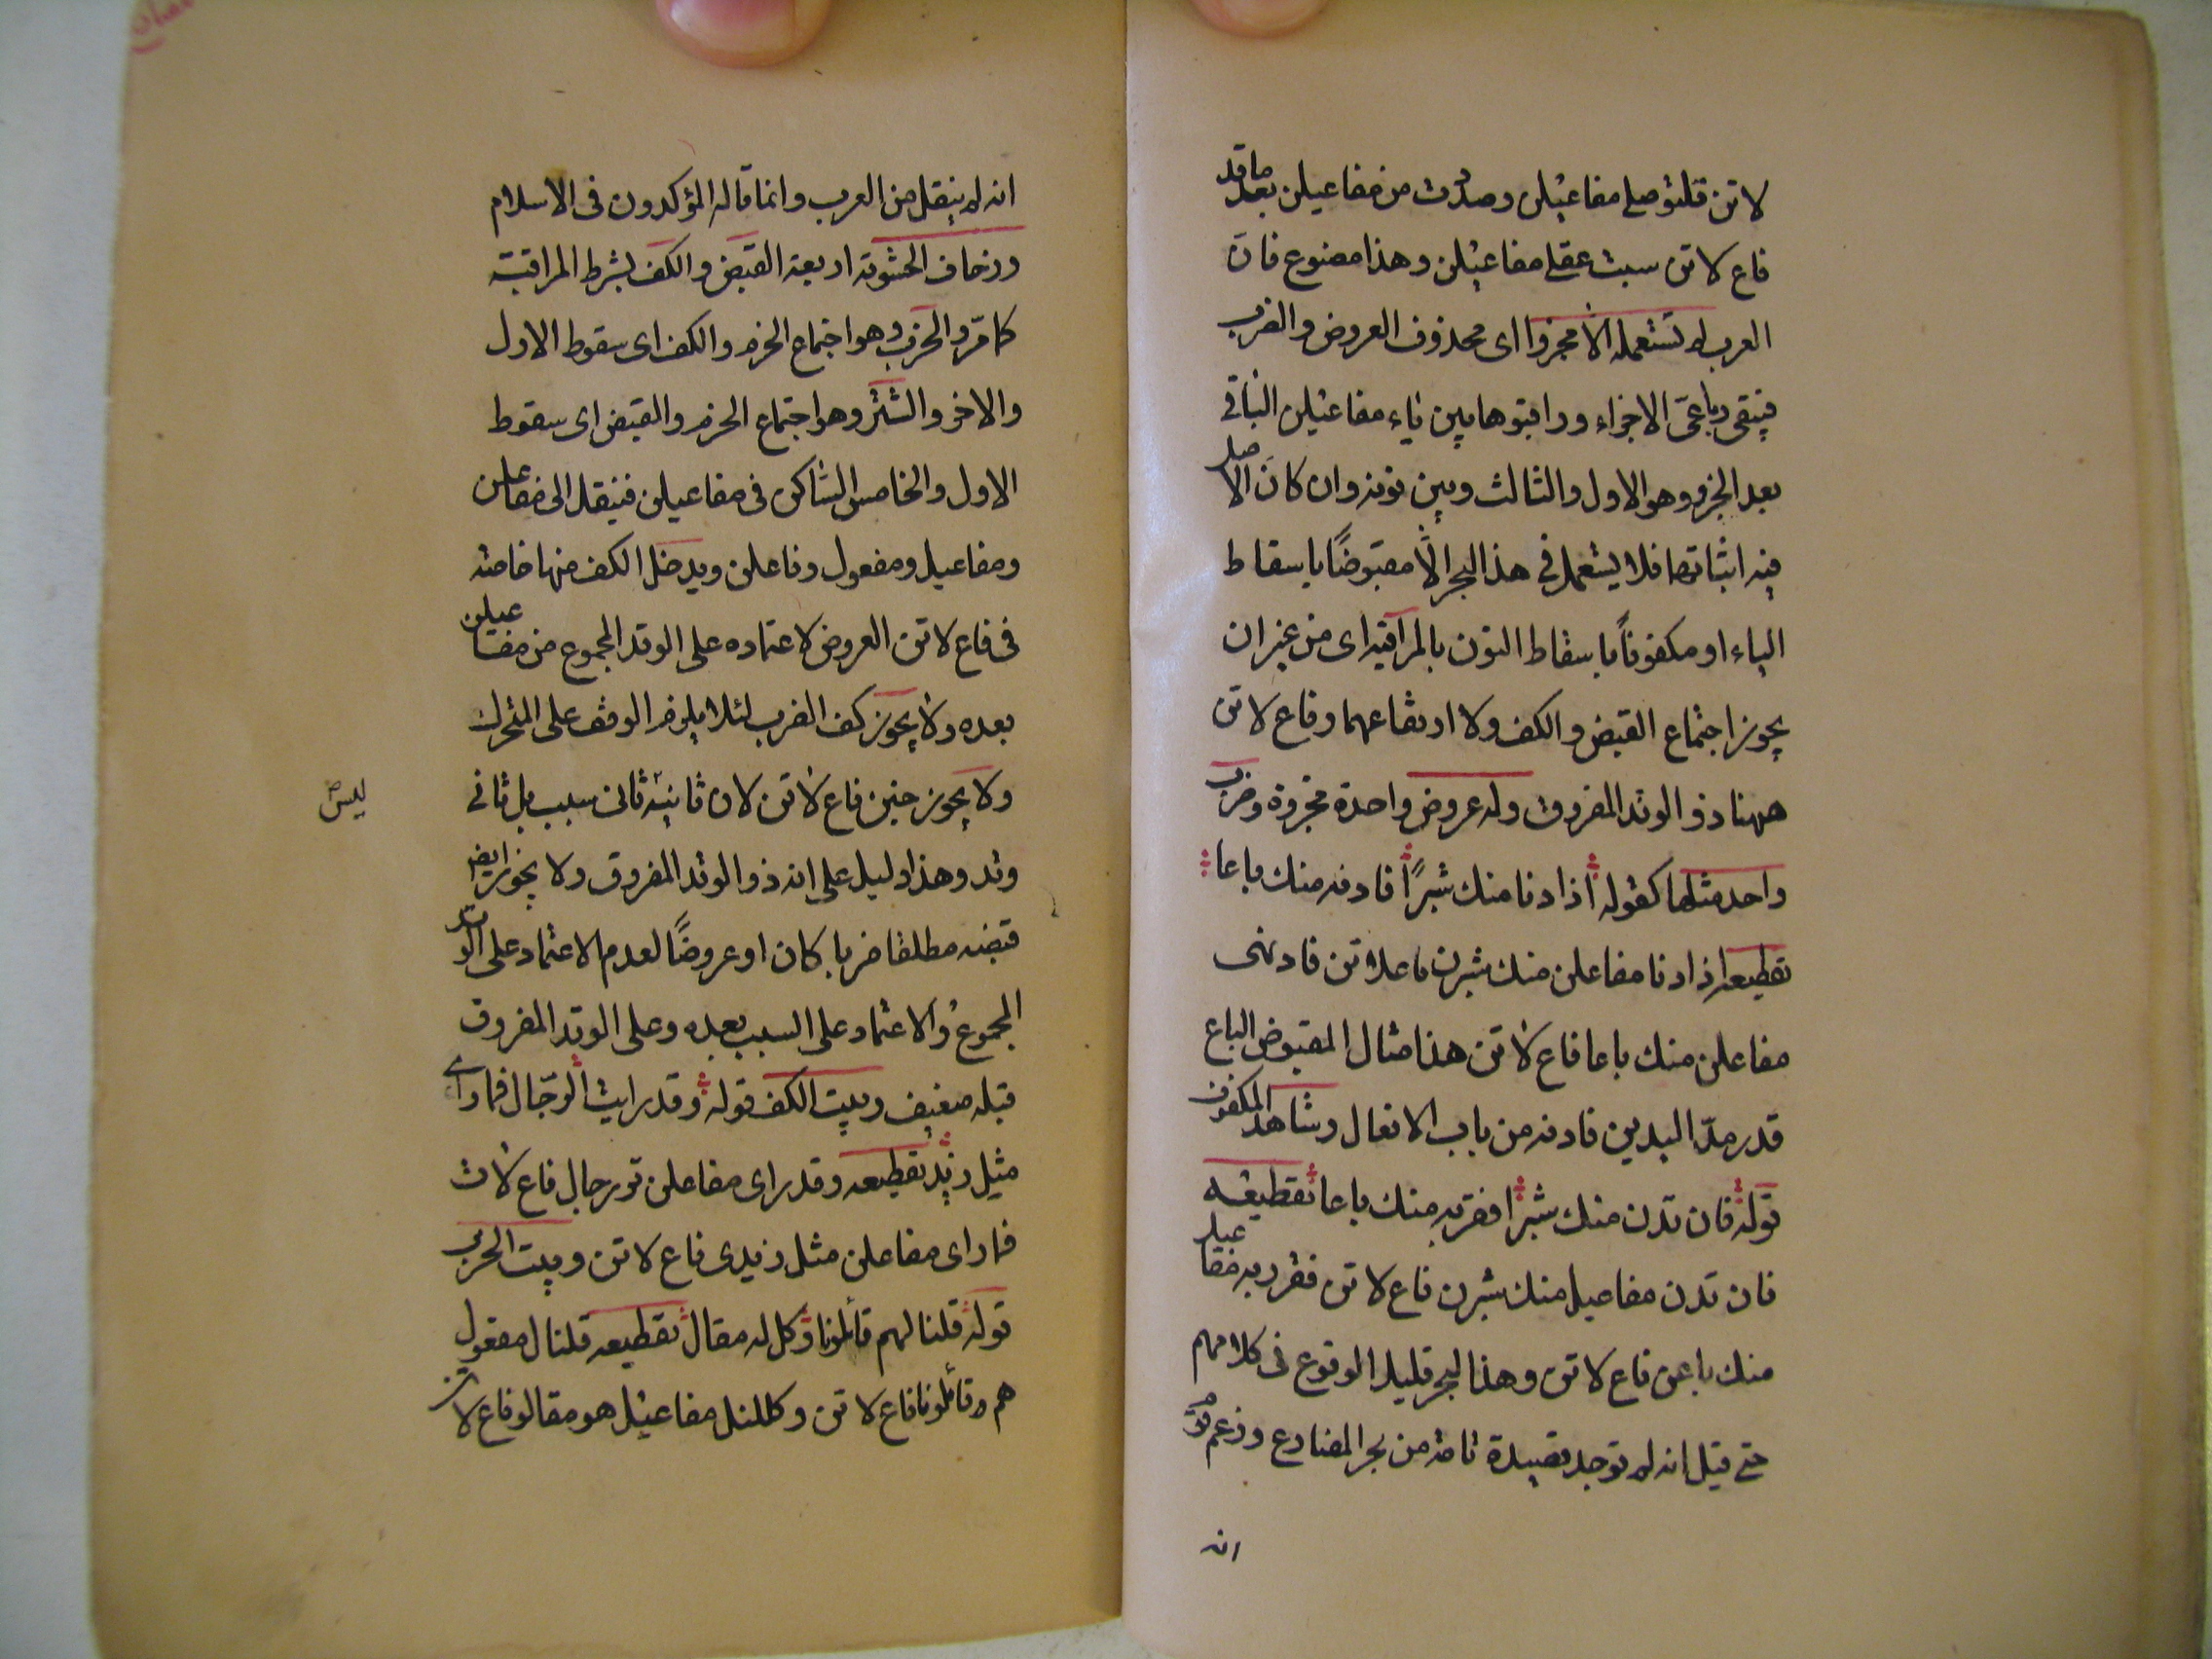 لا تن قلتو صلى مفاعيلن وصدرت من مفاعيلن بعد ما قد
فاع لا تن سبت عقلى مفاعيلن وهذا مصنوع فان
العرب لم تستعمله الا مجزوا اى محذوف العروض والضرب
فيبقى رباعى الاجزاء وراقبوها بين ياء مفاعيلن الباقى
بعد الجزو وهو الاول والثالث وبين نونه وان كان الاصل
فيه اثباتهما فلا يستعمل فى هذا البحر الا مقبوضًا باسقاط
الياء او مكفوفاً باسقاط النون بالمراقبة اى من غير ان
يجوز اجتماع القبض والكف ولا ارتفاعهما وفاع لا تن
ههنا ذو الوتد المفروق وله عروض واحدة مجزوة وضرب
واحد مثلها كقوله اذا دنا منك شبرًا فادنه منك باعا
تقطيعه اذا دنا مفاعلن منك شبرن فاعلا تن فادنهى
مفاعلن منك باعا فاع لا تن هذا مثال المقبوض الباع
قدر مدّ اليدين فادنه من باب الافعال وشاهد المكفوف
قوله فان تدن منك شبرا فقربه منك باعا تقطيعه
فان تدن مفاعيل منك شبرن فاع لا تن فقر ربه مفاعيل
منك باعن فاع لا تن وهذا البحر قليل الوقوع فى كلامهم
حتى قيل انه لم توجد قصيدة تامة من بحر المضارع وزعم قوم
انه
انه لم ينقل من العرب وانما قاله المؤكدون فى الاسلام
وزحاف الحشوية اربعة القبض والكف بشرط المراقبة
كما مرّ والخرب وهو اجتماع الخرم والكف اى سقوط الاول
والاخر والشتر وهو اجتماع الخرم والقبض اى سقوط
الاول والخامس الساكن فى مفاعيلن فينقل الى مفاعلن
ومفاعيل ومفعول وفاعلن ويدخل الكف منها خاصة
فى فاع لا تن العروض لاعتماده على الوتد المجموع من مفاعيلن
بعده ولا يجوز كف الضرب لئلا يلزم الوقف على المتحرك
ولا يجوز خبن فاع لا تن لان ثانيه ثانى سبب بل ثانى
ليس صح
وتد وهذا دليل على انه ذو الوتد المفروق ولا يجوز ايضا
قبضه مطلقا ضربا كان او عروضًا لعدم الاعتماد على الوتد
المجموع والاعتماد على السبب بعده وعلى الوتد المفروق
قبله ضعيف وبيت الكف قوله وقد رايت الرّجال فما ارى
مثيل زيد تقطيعه وقد راى مفاعلن تو رجال فاع لات
فما راى مفاعلن مثل زيدى فاع لا تن وبيت الخرب
قوله قلنا لهم قائلونا وكل له مقال تقطيعه قلنا ل مفعول
هم وقائلونا فاع لا تن وكللنل مفاعيل هو مقالو فاع لا تن